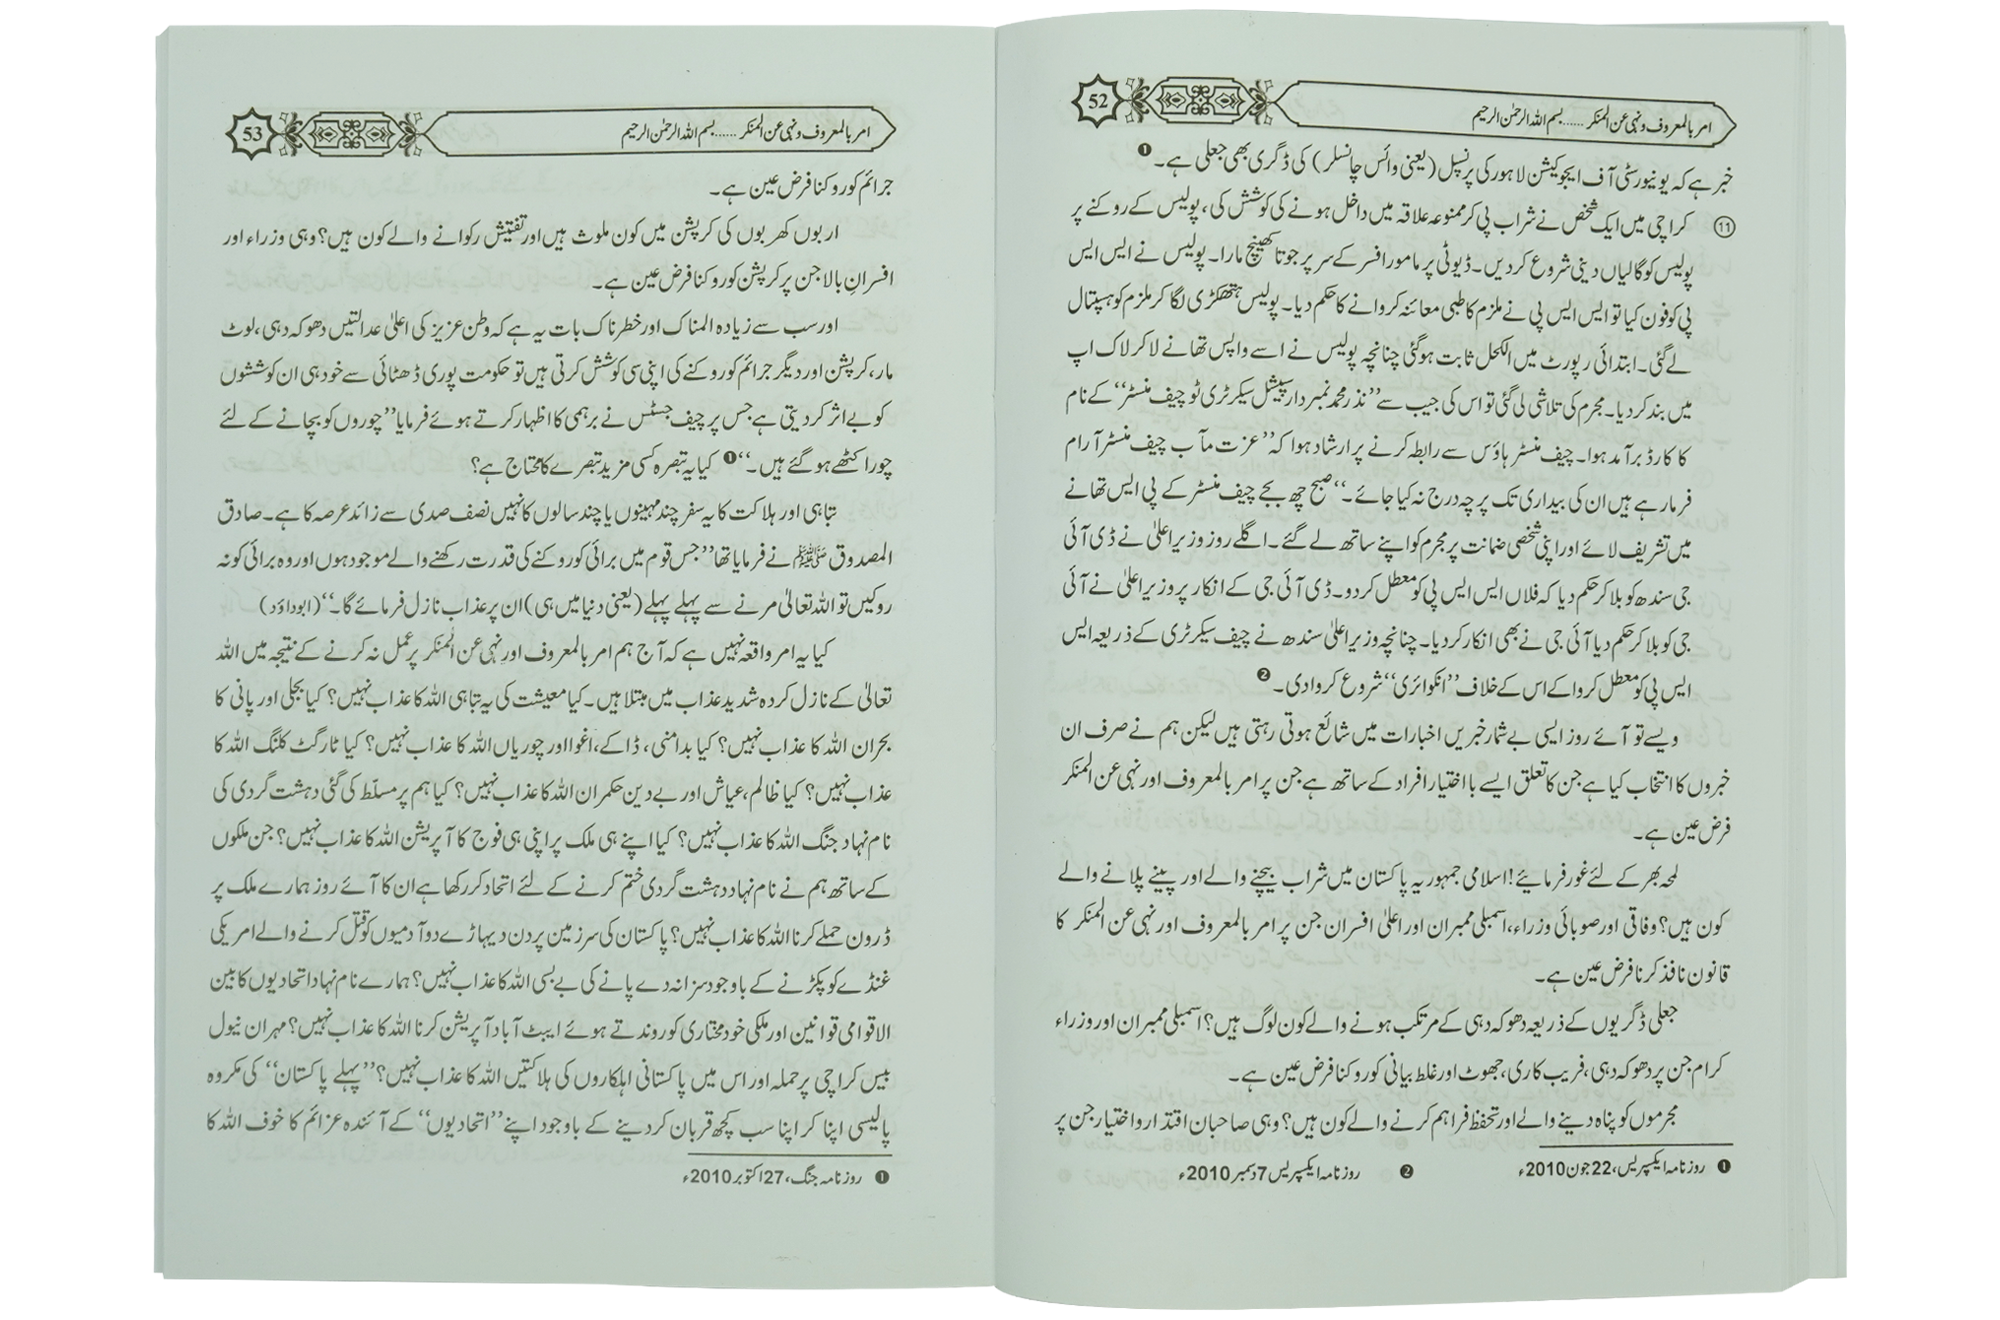 امر بالمعروف و نہی عن المنکر ...... بسم اللہ الرحمٰن الرحیم
52
خبر ہے کہ یونیورسٹی آف ایجوکیشن لاہور کی پرنسپل (یعنی وائس چانسلر) کی ڈگری بھی جعلی ہے۔ ❶
⑪ کراچی میں ایک شخص نے شراب پی کر ممنوعہ علاقہ میں داخل ہونے کی کوشش کی، پولیس کے روکنے پر
پولیس کو گالیاں دینی شروع کر دیں۔ ڈیوٹی پر مامور افسر کے سر پر جوتا کھینچ مارا۔ پولیس نے ایس ایس
پی کو فون کیا تو ایس ایس پی نے ملزم کا طبی معائنہ کروانے کا حکم دیا۔ پولیس ہتھکڑی لگا کر ملزم کو ہسپتال
لے گئی۔ ابتدائی رپورٹ میں الکحل ثابت ہوگئی چنانچہ پولیس نے اسے واپس تھانے لا کر لاک اپ
میں بند کر دیا۔ مجرم کی تلاشی لی گئی تو اس کی جیب سے ’’نذر محمد نمبردار سپیشل سیکرٹری ٹو چیف منسٹر‘‘ کے نام
کا کارڈ برآمد ہوا۔ چیف منسٹر ہاؤس سے رابطہ کرنے پر ارشاد ہوا کہ ’’عزت مآب چیف منسٹر آرام
فرما رہے ہیں ان کی بیداری تک پرچہ درج نہ کیا جائے۔‘‘ صبح چھ بجے چیف منسٹر کے پی ایس تھانے
میں تشریف لائے اور اپنی شخصی ضمانت پر مجرم کو اپنے ساتھ لے گئے۔ اگلے روز وزیر اعلیٰ نے ڈی آئی
جی سندھ کو بلا کر حکم دیا کہ فلاں ایس ایس پی کو معطل کر دو۔ ڈی آئی جی کے انکار پر وزیر اعلیٰ نے آئی
جی کو بلا کر حکم دیا آئی جی نے بھی انکار کر دیا۔ چنانچہ وزیر اعلیٰ سندھ نے چیف سیکرٹری کے ذریعہ ایس
ایس پی کو معطل کروا کے اس کے خلاف ’’انکوائری‘‘ شروع کروا دی۔ ❷
ویسے تو آئے روز ایسی بے شمار خبریں اخبارات میں شائع ہوتی رہتی ہیں لیکن ہم نے صرف ان
خبروں کا انتخاب کیا ہے جن کا تعلق ایسے بااختیار افراد کے ساتھ ہے جن پر امر بالمعروف اور نہی عن المنکر
فرض عین ہے۔
لمحہ بھر کے لئے غور فرمایئے! اسلامی جمہوریہ پاکستان میں شراب بیچنے والے اور پینے پلانے والے
کون ہیں؟ وفاقی اور صوبائی وزراء، اسمبلی ممبران اور اعلیٰ افسران جن پر امر بالمعروف اور نہی عن المنکر کا
قانون نافذ کرنا فرض عین ہے۔
جعلی ڈگریوں کے ذریعہ دھوکہ دہی کے مرتکب ہونے والے کون لوگ ہیں؟ اسمبلی ممبران اور وزراء
کرام جن پر دھوکہ دہی، فریب کاری، جھوٹ اور غلط بیانی کو روکنا فرض عین ہے۔
مجرموں کو پناہ دینے والے اور تحفظ فراہم کرنے والے کون ہیں؟ وہی صاحبان اقتدار و اختیار جن پر
❶ روزنامہ ایکسپریس، 22 جون 2010ء ❷ روزنامہ ایکسپریس 7 دسمبر 2010ء
امر بالمعروف و نہی عن المنکر ...... بسم اللہ الرحمٰن الرحیم
53
جرائم کو روکنا فرض عین ہے۔
اربوں کھربوں کی کرپشن میں کون ملوث ہیں اور تفتیش رکوانے والے کون ہیں؟ وہی وزراء اور
افسرانِ بالا جن پر کرپشن کو روکنا فرض عین ہے۔
اور سب سے زیادہ المناک اور خطرناک بات یہ ہے کہ وطن عزیز کی اعلیٰ عدالتیں دھوکہ دہی، لوٹ
مار، کرپشن اور دیگر جرائم کو روکنے کی اپنی سی کوشش کرتی ہیں تو حکومت پوری ڈھٹائی سے خود ہی ان کوششوں
کو بے اثر کر دیتی ہے جس پر چیف جسٹس نے برہمی کا اظہار کرتے ہوئے فرمایا ’’چوروں کو بچانے کے لئے
چور اکٹھے ہو گئے ہیں۔‘‘ ❶ کیا یہ تبصرہ کسی مزید تبصرے کا محتاج ہے؟
تباہی اور ہلاکت کا یہ سفر چند مہینوں یا چند سالوں کا نہیں نصف صدی سے زائد عرصہ کا ہے۔ صادق
المصدوق ﷺ نے فرمایا تھا ’’جس قوم میں برائی کو روکنے کی قدرت رکھنے والے موجود ہوں اور وہ برائی کو نہ
روکیں تو اللہ تعالیٰ مرنے سے پہلے پہلے (یعنی دنیا میں ہی) ان پر عذاب نازل فرمائے گا۔‘‘ (ابوداؤد)
کیا یہ امر واقعہ نہیں ہے کہ آج ہم امر بالمعروف اور نہی عن المنکر پر عمل نہ کرنے کے نتیجہ میں اللہ
تعالیٰ کے نازل کردہ شدید عذاب میں مبتلا ہیں۔ کیا معیشت کی یہ تباہی اللہ کا عذاب نہیں؟ کیا بجلی اور پانی کا
بحران اللہ کا عذاب نہیں؟ کیا بدامنی، ڈاکے، اغوا اور چوریاں اللہ کا عذاب نہیں؟ کیا ٹارگٹ کلنگ اللہ کا
عذاب نہیں؟ کیا ظالم، عیاش اور بے دین حکمران اللہ کا عذاب نہیں؟ کیا ہم پر مسلّط کی گئی دہشت گردی کی
نام نہاد جنگ اللہ کا عذاب نہیں؟ کیا اپنے ہی ملک پر اپنی ہی فوج کا آپریشن اللہ کا عذاب نہیں؟ جن ملکوں
کے ساتھ ہم نے نام نہاد دہشت گردی ختم کرنے کے لئے اتحاد کر رکھا ہے ان کا آئے روز ہمارے ملک پر
ڈرون حملے کرنا اللہ کا عذاب نہیں؟ پاکستان کی سرزمین پر دن دیہاڑے دو آدمیوں کو قتل کرنے والے امریکی
غنڈے کو پکڑنے کے باوجود سزا نہ دے پانے کی بے بسی اللہ کا عذاب نہیں؟ ہمارے نام نہاد اتحادیوں کا بین
الاقوامی قوانین اور ملکی خود مختاری کو روندتے ہوئے ایبٹ آباد آپریشن کرنا اللہ کا عذاب نہیں؟ مہران نیول
بیس کراچی پر حملہ اور اس میں پاکستانی اہلکاروں کی ہلاکتیں اللہ کا عذاب نہیں؟ ’’پہلے پاکستان‘‘ کی مکروہ
پالیسی اپنا کر اپنا سب کچھ قربان کر دینے کے باوجود اپنے ’’اتحادیوں‘‘ کے آئندہ عزائم کا خوف اللہ کا
❶ روزنامہ جنگ، 27 اکتوبر 2010ء